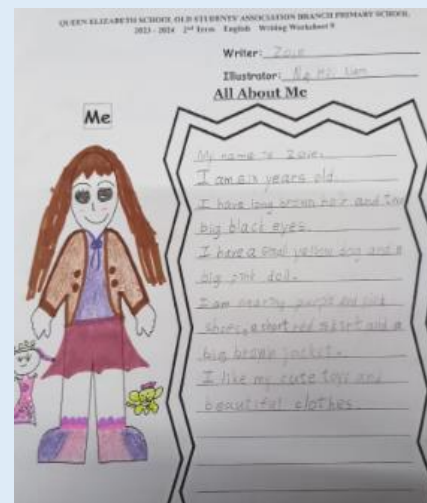 QUEEN ELIZABETH SCHOOL OLD STUDENTS' ASSOCIATION BRANCH PRIMARY SCHOOL
2023 - 2024 2nd Term English Writing Worksheet 9
Writer: Zoie
Illustrator:
All About Me
Me
My name is Zoie.
I am six years old.
I have long brown hair and two
big black eyes.
I have a small yellow dog and a
big pink doll.
I am wearing purple and pink
shoes, a short red skirt and a
big brown jacket.
I like my cute toys and
beautiful clothes.